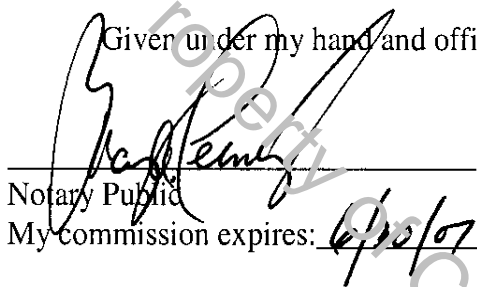 Given under my hand and offi
Notary Public
My commission expires: 6/30/07
roperty of C